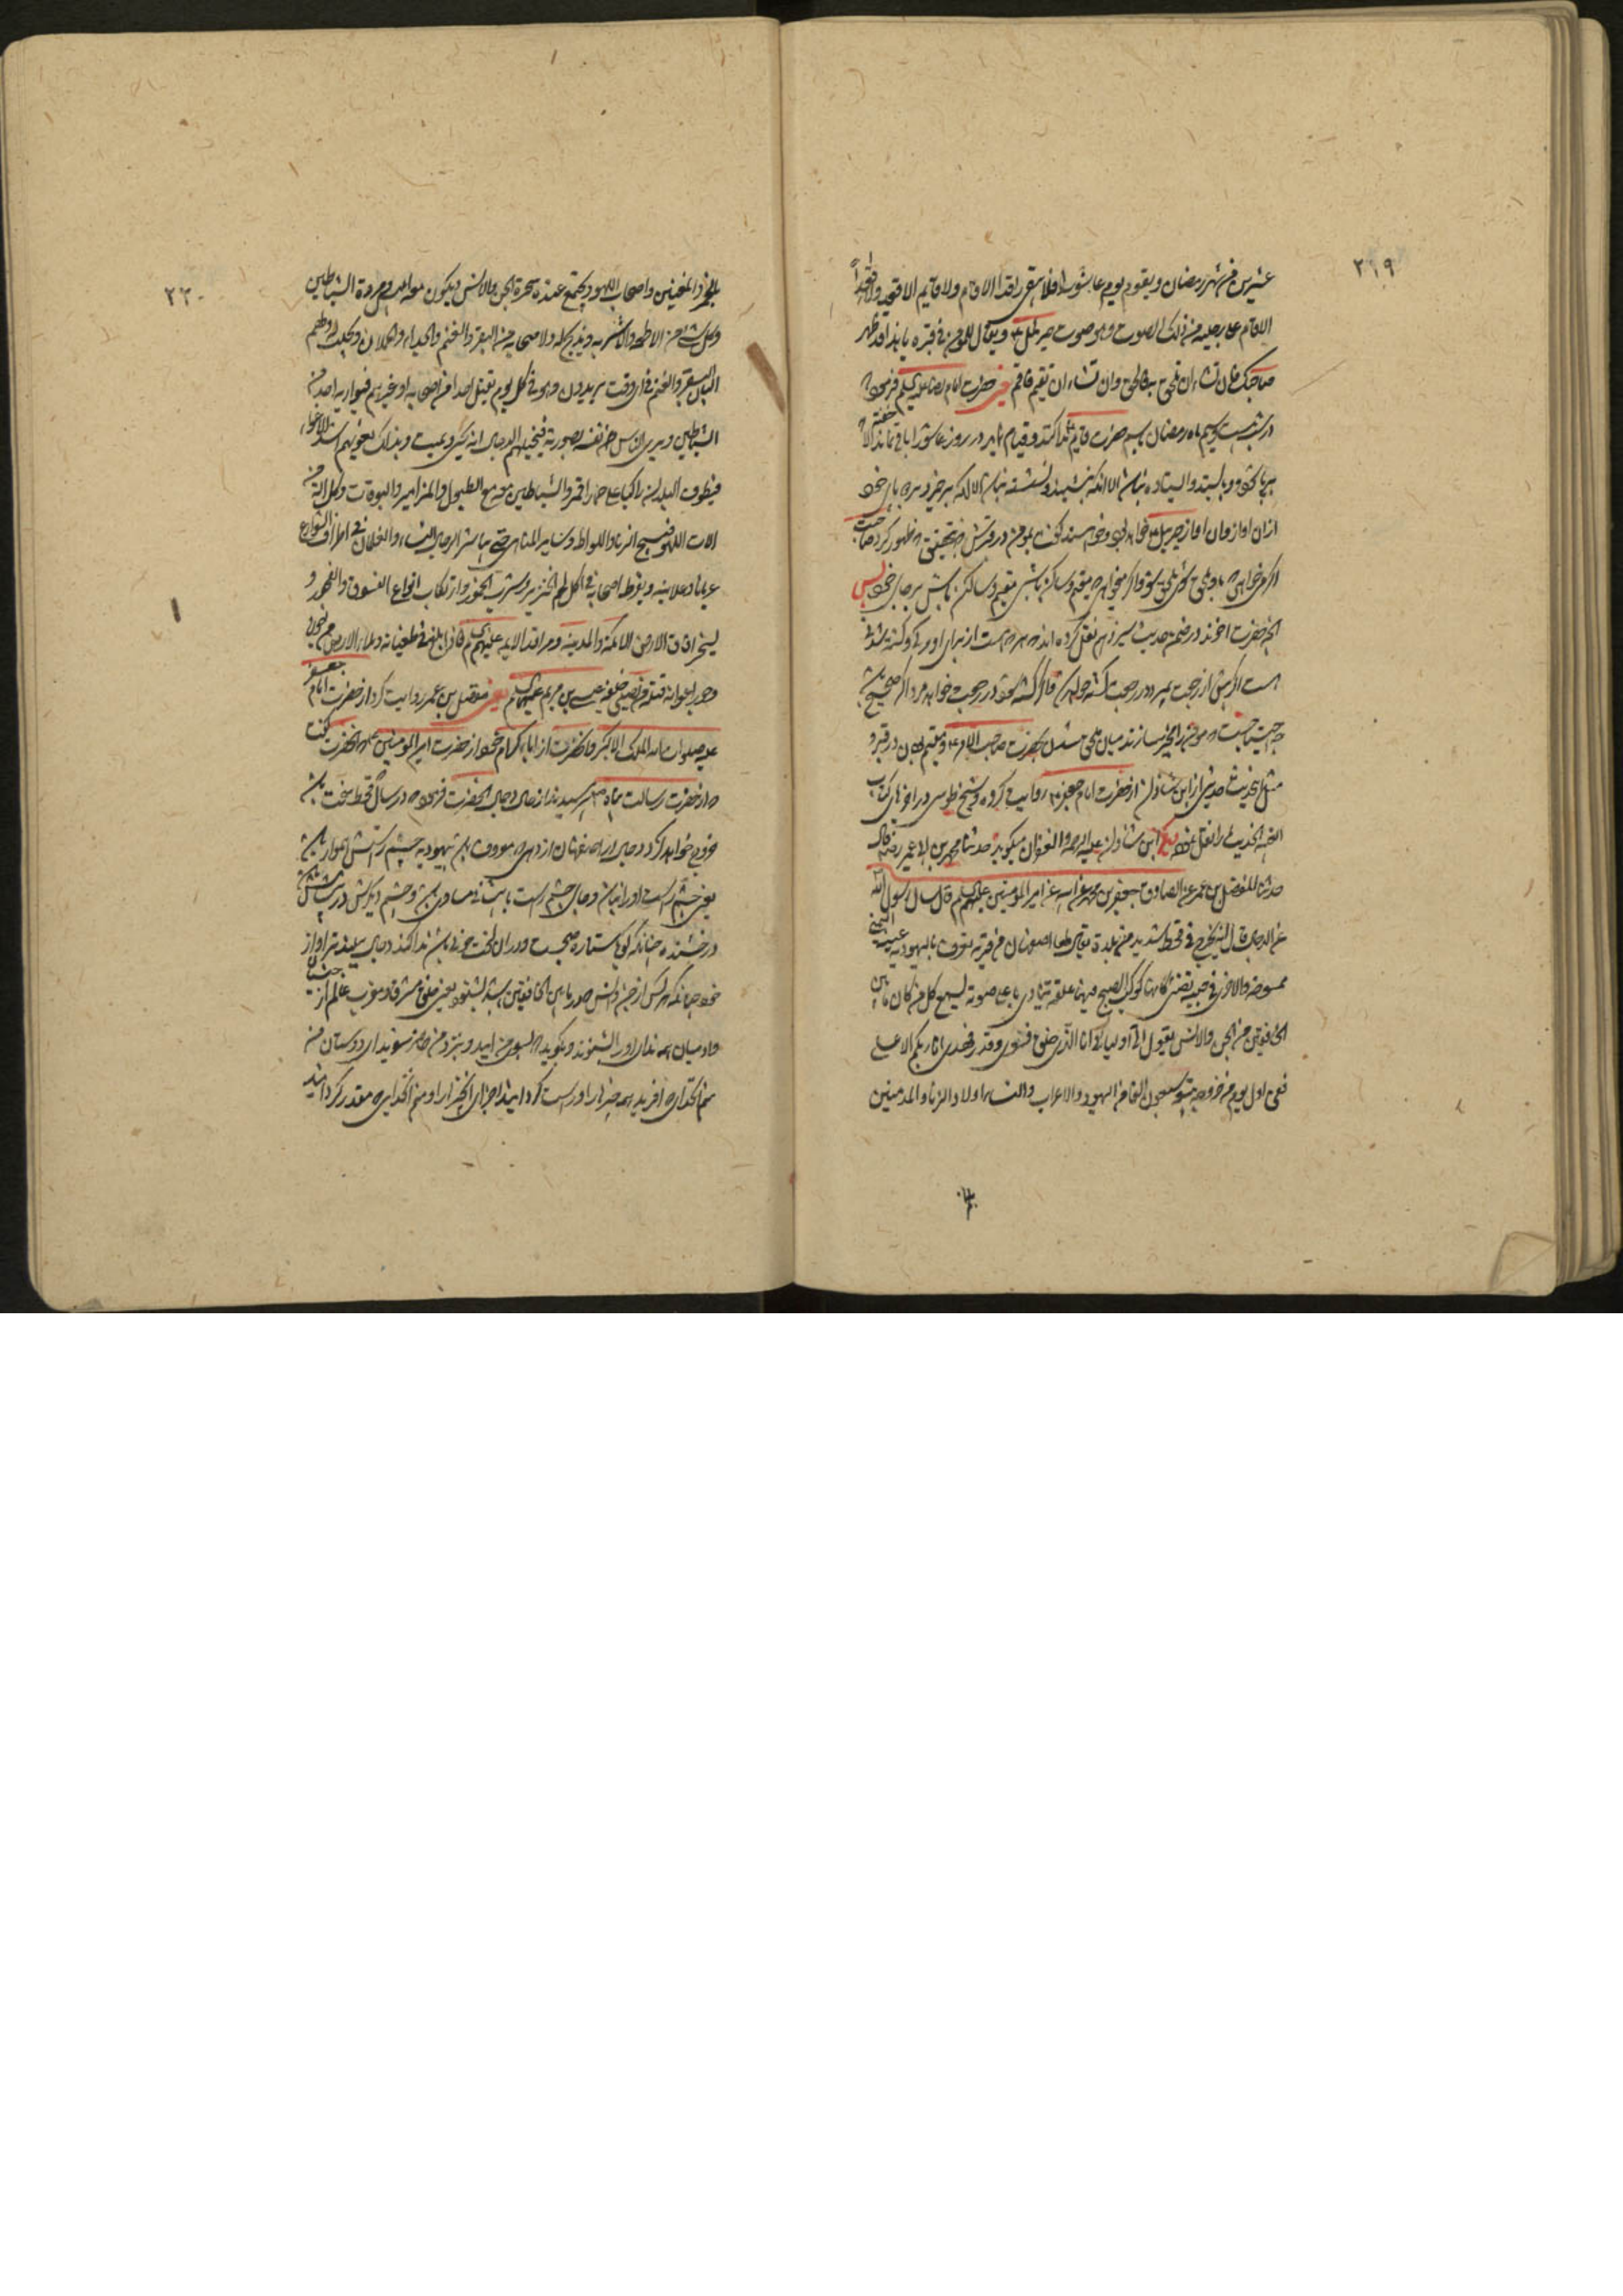 ٢١٩
عشرين من شهر رمضان ويقوم يوم عاشورا فلا يبقى راقد الا قام ولا قايم الا قعد ولا قاعدا
الا قام على رجليه من ذلك الصوت وهو صوت جبرئيل ع ويقال للمؤمن في قبره يا هذا قد ظهر
صاحبك فان تشاء ان تلحق به فالحق وان تشاء ان تقيم فاقم يعنى حضرت امام رضا عليه السلم فرمود كه
در شب بيست وسيم ماه رمضان باسم حضرت قايم ع ندا كنند وقيام نمايد در روز عاشورا باقى نماند خفته الا كه
برپا شود وبايستد وايستاده نباشد الا انكه بنشيند ونشسته نباشد الا انكه برخيزد برپاى خود
ازان اواز وان اواز جبرئيل ع خواهد بود وخواهند گفت بمؤمن در قبرش كه بتحقيق كه ظهور كرد صاحبت
اگر ميخواهى كه باو ملحق شوى ملحق شو واگر ميخواهى كه مقيم وساكن باشى مقيم وساكن باش برجاى خود پس
انچه حضرت اخوند در ضمن حديث سيزدهم نقل كرده اند كه هر كه هست از براى او مردنى وكشته شدنى
هست اگر پيش از رجعت بميرد در رجعت كشته خواهد شد واگر كشته شود در رجعت خواهد مرد اگر صحيح باشد
مثل اينحديث حديثى از ابن شاذان از حضرت امام جعفر ع روايت كرده وشيخ طوسى در اخر باب كتاب
الغيبه انحديث را نقل نموده ابن شاذان عليه الرحمة والغفران ميگويد حدثنا محمد بن ابى عمير رض قال
حدثنا المفضل بن عمر عن الصادق جعفر بن محمد عن ابيه عن امير المؤمنين عليهم السلم قال سال رسول الله
عن الدجال قال انه يخرج في قحط شديد من بلدة يقال لها اصفهان من قرية تعرف باليهوديه عينه اليمنى
ممسوحة والاخرى في جبهته تضئ كانها كوكب الصبح فيها علقة ينادى باعلى صوته يسمع كل من كان مابين
الخافقين من الجن والانس يقول الى اوليائى انا الذى خلق فسوى وقدر فهدى انا ربكم الاعلى
ففي اول يوم من خروجه يتبعه سبعون الفا من اليهود والاعراب والنساء واولاد الزنا والمدمنين
٢٢٠
بالخمر والمغنين واصحاب اللهو ويجتمع عنده سحرة الجن والانس ويكون معه ابليس ومردة الشياطين
وكل شئ من الاطعمة والاشربه ويذبح له ولاصحابه من البقر والغنم والجداء والحملان ويجلب لهم
البان البقر والغنم في اى وقت يريدون وهو في كل يوم يقتل احدا من اصحابه او غيرهم فيواريه احد من
الشياطين ويرى الناس نفسه بصورته فيخيل لهم الدجال انه يحيى ويميت وبذلك يغويهم اشد الاغواء
فيطوف البلدان راكبا على حمار اقمر والشياطين معه مع الطبول والمزامير والبوقات وكل الة من
الات اللهو فيبيح الزنا واللواط وساير المناهى حتى يباشر الرجال النساء والغلمان في اطراف الشوارع
عريانا وعلانية ويفرط اصحابه في اكل لحم الخنزير وشرب الخمور وارتكاب انواع الفسوق والفجور و
يسخر افاق الارض الا مكة والمدينة ومراقد الائمه عليهم السلم فاذا بلغ في طغيانه وملأ الارض من جوره
وجور اعوانه قتله من يصلى خلفه عيسى بن مريم عليهما السلم يعنى مفضل بن عمر روايت كرد از حضرت امام جعفر
عليه صلوات الله الملك الاكبر وانحضرت از اباء كرام خود از حضرت امير المؤمنين ع كه انحضرت گفت
كه از حضرت رسالت پناه ص پرسيدند از حال دجال انحضرت فرمود كه در سال قحط سخت باشد
خروج خواهد كرد دجال از اصفهان از دهى كه معروف بود بيهوديه چشم راستش هموار باشد
يعنى چشم راست او را نباشد وجاى چشم راست با پيشانى مساوى باشد وچشم ديگرش در پيشانيش
درخشنده چنانكه گويا ستاره صبح است ودر ان لخت خونى باشد ندا كند دجال ببلندتر اواز
خود چنانكه هر كس از جن وانس كه در مابين الخافقين باشد بشنود يعنى خلق مشرق ومغرب عالم از جنيان
وادميان همه نداى او را بشنوند وبگويد كه بسوى من اييد وبنزد من حاضر شويد اى دوستان من
منم انكسى كه افريد همه چيزها را وراست گردانيد اجزاى انچيزها را ومنم انكه كه مقدر گردانيد